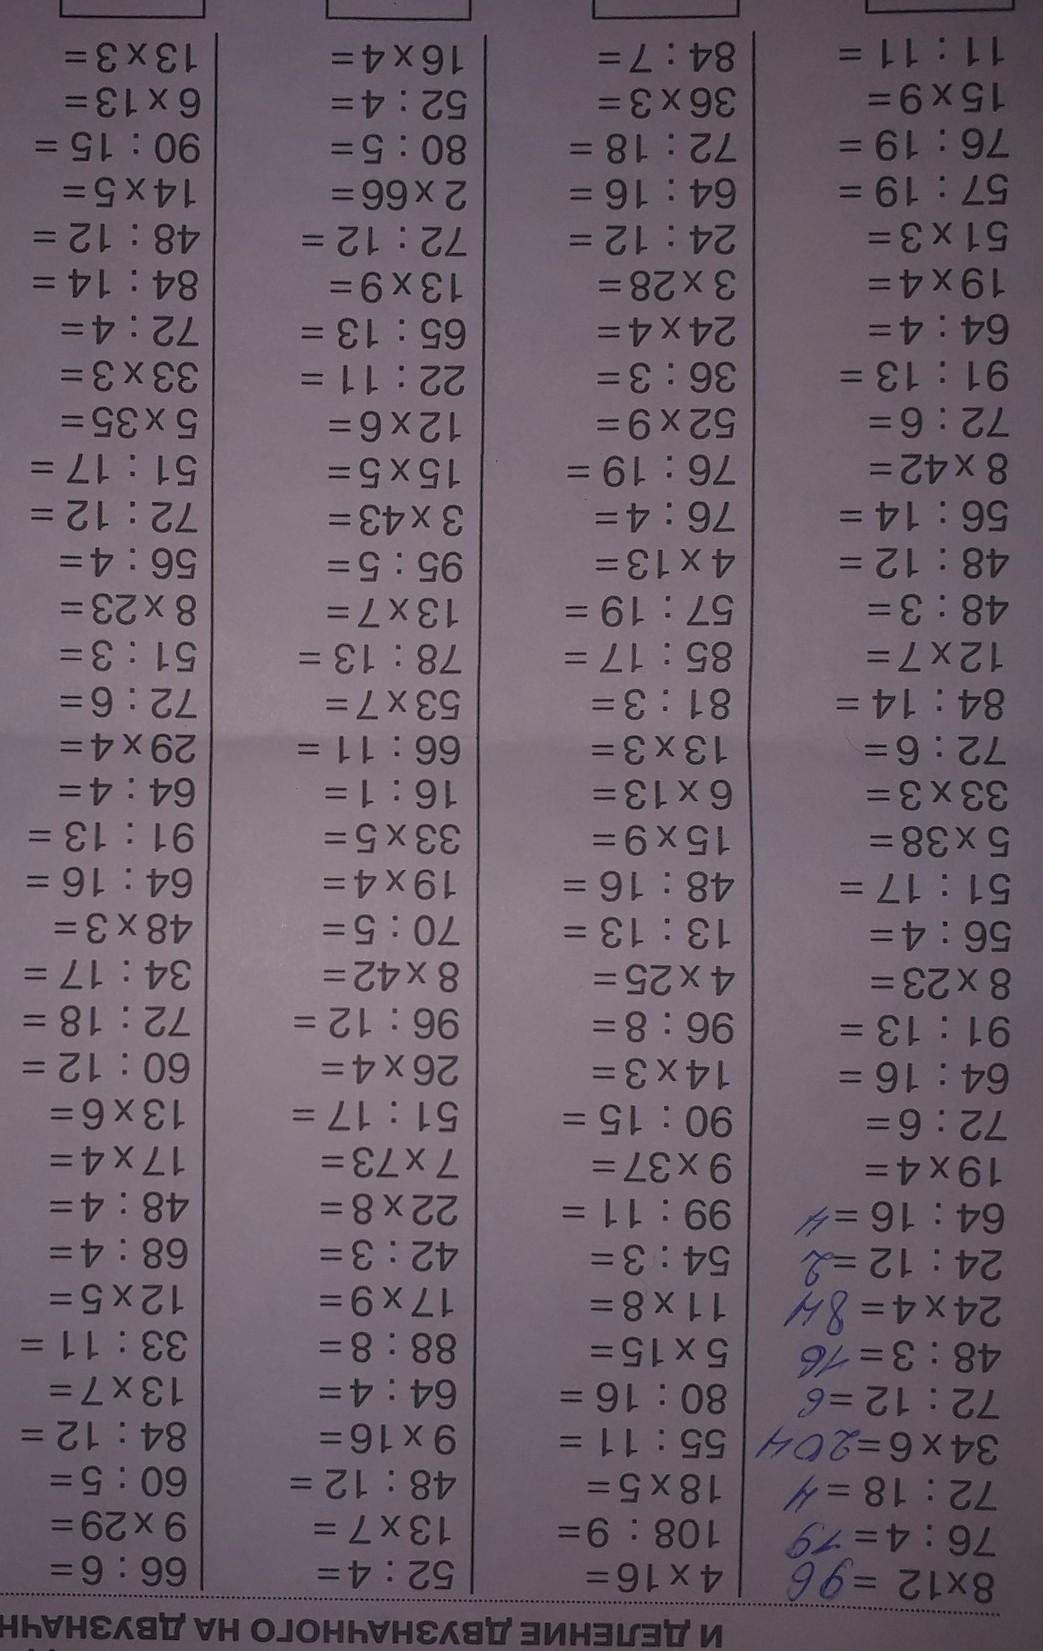 И ДЕЛЕНИЕ ДВУЗНАЧНОГО НА ДВУЗНАЧН
8x12 = 96
76 : 4 = 19
72 : 18 = 4
34 x 6 = 204
72 : 12 = 6
48 : 3 = 16
24 x 4 = 84
24 : 12 = 2
64 : 16 = 4
19 x 4 =
72 : 6 =
64 : 16 =
91 : 13 =
8 x 23 =
56 : 4 =
51 : 17 =
5 x 38 =
33 x 3 =
72 : 6 =
84 : 14 =
12 x 7 =
48 : 3 =
48 : 12 =
56 : 14 =
8 x 42 =
72 : 6 =
91 : 13 =
64 : 4 =
19 x 4 =
51 x 3 =
57 : 19 =
76 : 19 =
15 x 9 =
11 : 11 =
4 x 16 =
108 : 9 =
18 x 5 =
55 : 11 =
80 : 16 =
5 x 15 =
11 x 8 =
54 : 3 =
99 : 11 =
9 x 37 =
90 : 15 =
14 x 3 =
96 : 8 =
4 x 25 =
13 : 13 =
48 : 16 =
15 x 9 =
6 x 13 =
13 x 3 =
81 : 3 =
85 : 17 =
57 : 19 =
4 x 13 =
76 : 4 =
76 : 19 =
52 x 9 =
36 : 3 =
24 x 4 =
3 x 28 =
24 : 12 =
64 : 16 =
72 : 18 =
36 x 3 =
84 : 7 =
52 : 4 =
13 x 7 =
48 : 12 =
9 x 16 =
64 : 4 =
88 : 8 =
17 x 9 =
42 : 3 =
22 x 8 =
7 x 73 =
51 : 17 =
26 x 4 =
96 : 12 =
8 x 42 =
70 : 5 =
19 x 4 =
33 x 5 =
16 : 1 =
66 : 11 =
53 x 7 =
78 : 13 =
13 x 7 =
95 : 5 =
3 x 43 =
15 x 5 =
12 x 6 =
22 : 11 =
65 : 13 =
13 x 9 =
72 : 12 =
2 x 66 =
80 : 5 =
52 : 4 =
16 x 4 =
66 : 6 =
9 x 29 =
60 : 5 =
84 : 12 =
13 x 7 =
33 : 11 =
12 x 5 =
68 : 4 =
48 : 4 =
17 x 4 =
13 x 6 =
60 : 12 =
72 : 18 =
34 : 17 =
48 x 3 =
64 : 16 =
91 : 13 =
64 : 4 =
29 x 4 =
72 : 6 =
51 : 3 =
8 x 23 =
56 : 4 =
72 : 12 =
51 : 17 =
5 x 35 =
33 x 3 =
72 : 4 =
84 : 14 =
48 : 12 =
14 x 5 =
90 : 15 =
6 x 13 =
13 x 3 =